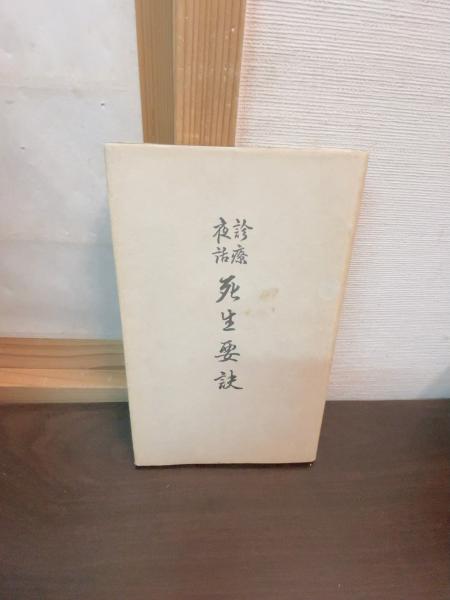 診療
夜話
死生要訣